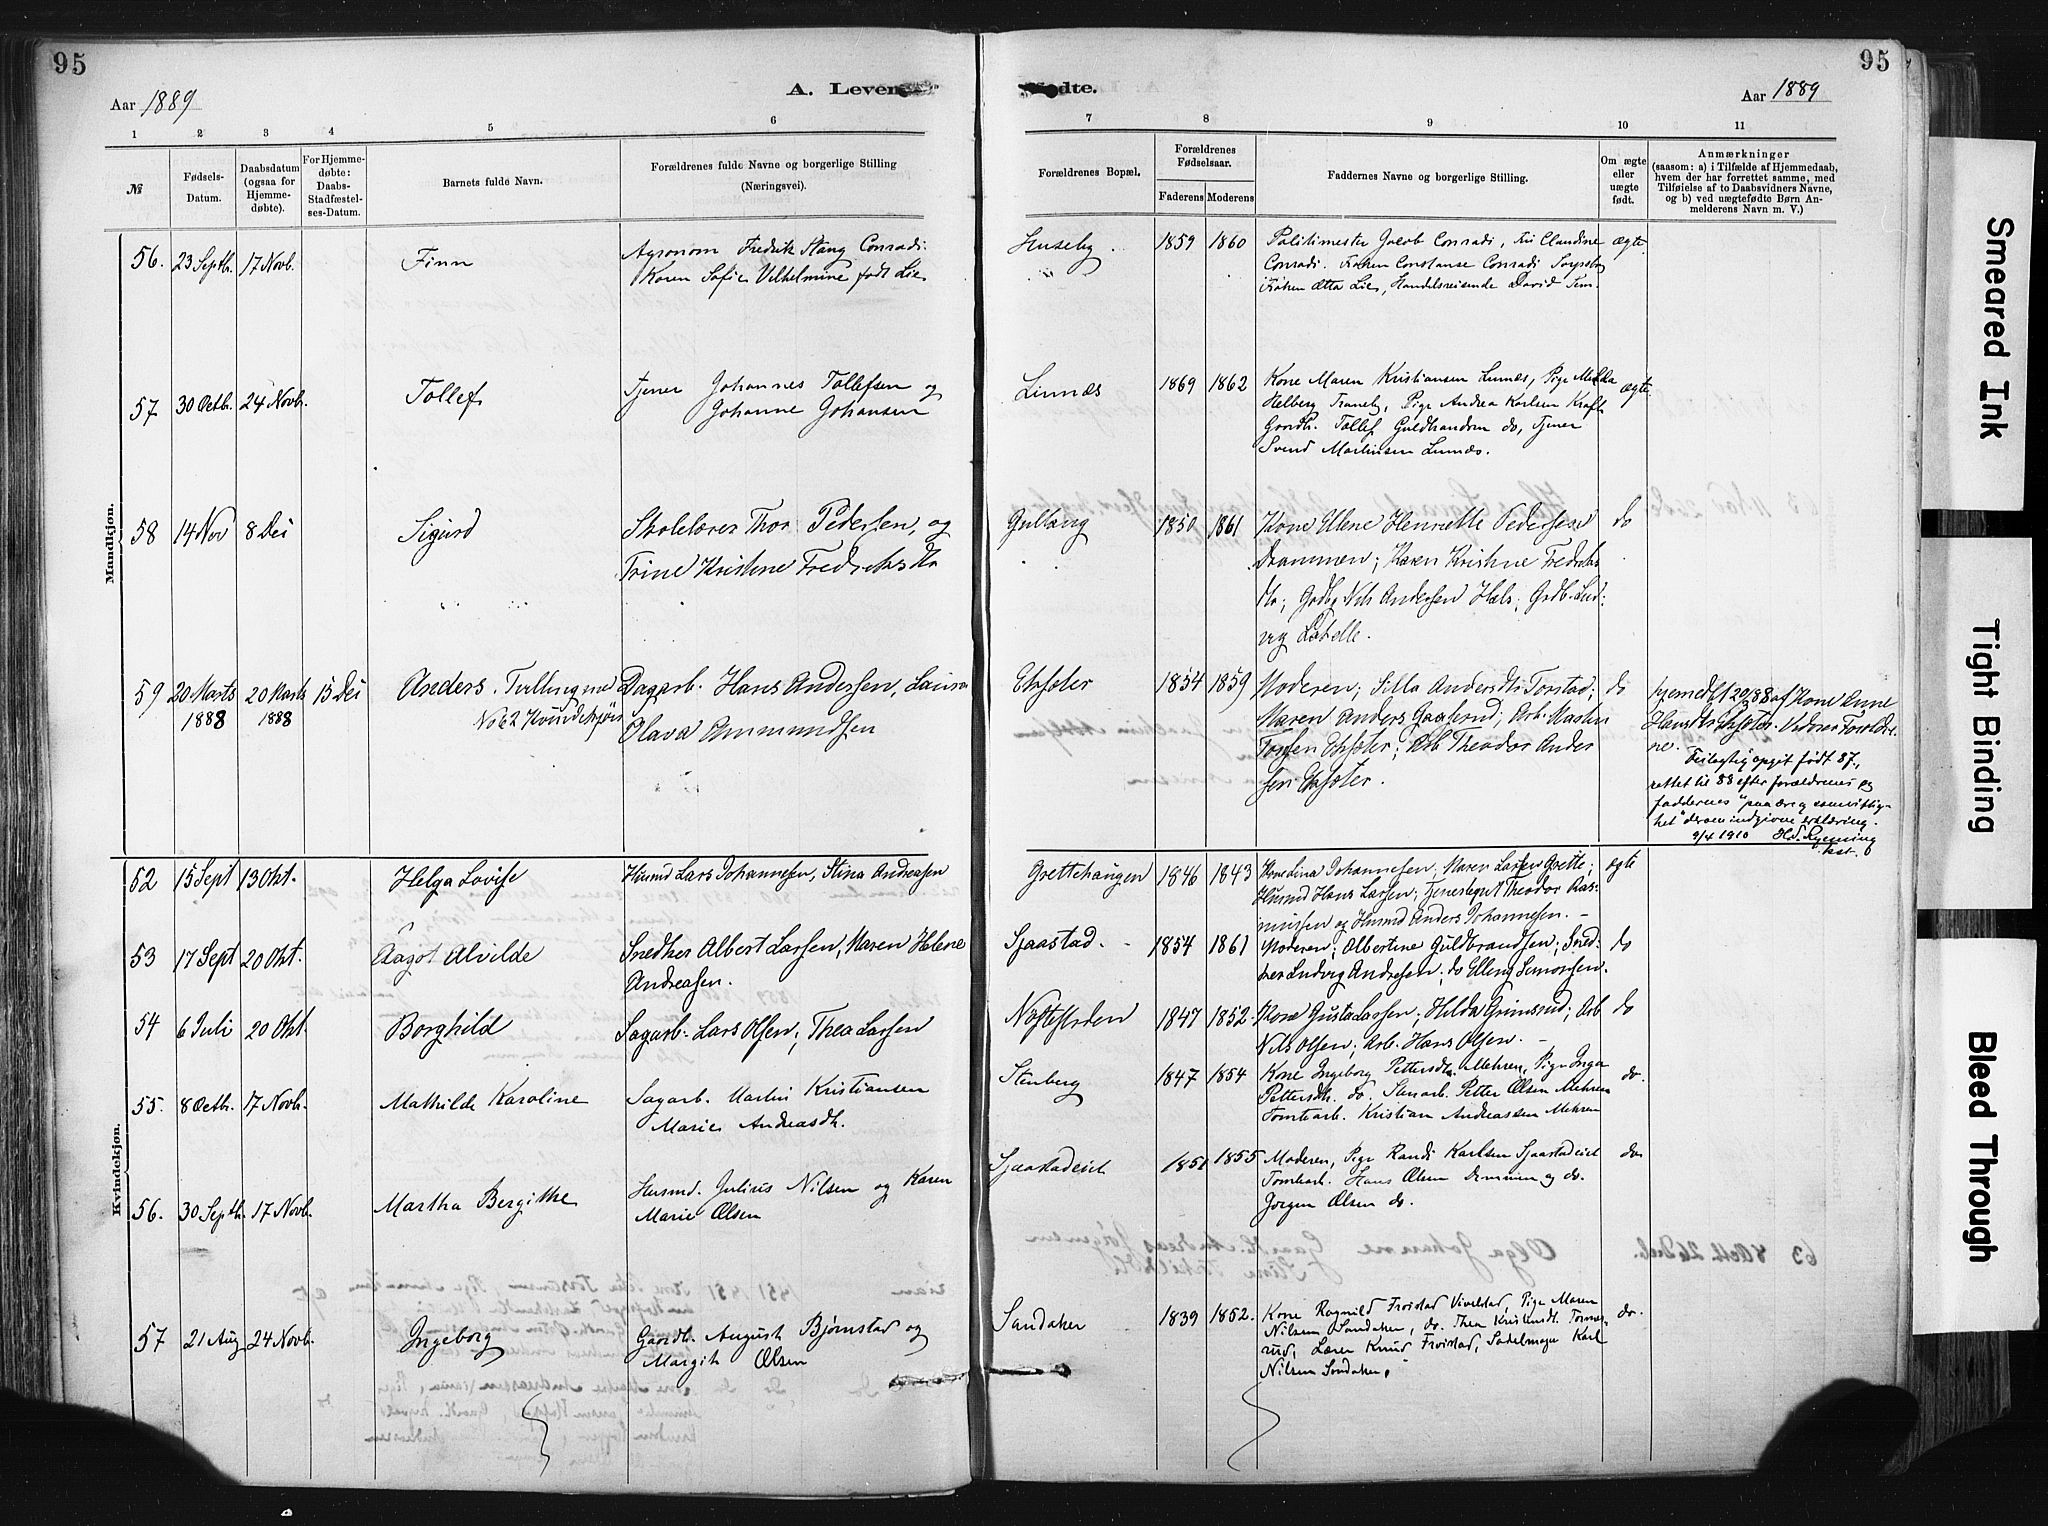 95
95
Aar 1889
A. Leven
ødte.
Aar 1889
1 2 3 4 5 6 7 8 9 10 11
№
Fødsels-
Datum.
Daabsdatum
(ogsaa for
Hjemme-
døbte).
For Hjemme-
døbte:
Daabs-
Stadfæstel-
ses-Datum.
Barnets fulde Navn.
Forældrenes fulde Navne og borgerlige Stilling
(Næringsvei).
Forældrenes Bopæl.
Forældrenes
Fødselsaar.
Faderens Moderens
Faddernes Navne og borgerlige Stilling.
Om ægte
eller
uægte
født.
Anmærkninger
(saasom: a) i Tilfælde af Hjemmedaab,
hvem der har forrettet samme, med
Tilføielse af to Daabsvidners Navne,
og b) ved uægtefødte Børn An-
melderens Navn m. V.)
Mandkjøn.
56. 23 Septb. 17 Novb. Finn
Agronom Fredrik Stang Conradi
Karen Sofie Vilhelmine født Lie
Huseby 1859 1860
Politimester Jacob Conradi, Fru Claudine ægte
Conradi. Frøken Constanse Conradi
Frøken Lie, Handelsreisende David
57 30 Octb. 24 Novb. Tollef
Tjener Johannes Tollefsen og
Johanne Johansen
Linnæs 1869 1862
Kone Maren Kristiansen Linnæs, Pige ægte
Helberg Traneby, Pige Andrea Karlsen
Gaardb. Tollef Guldbrandsen do, Tjener
Svend Martinsen Linnæs.
58 14 Nov 8 Dei Sigurd
Skolelærer Thor Pedersen, og
Trine Kristine Fredriksdtr
Gullaug 1850 1861
Kone Ellene Henriette Pedersen do
Drammen; Karen Kristine Fredriks
dtr; Grdb. Nils Andersen Hæls; Grdb. Lud:
vig Labelle.
59 20 Marts 20 Marts 15 Dei Anders. Tvilling med
1888 1888 No 62 Kvindekjøn
Dagarb. Hans Andersen, Laura
Olava Ammundsen
1854 1859
Moderen; Silla Andersdtr Torstad; do
Maren Anders Gaaserud; Arb. Martin
Arb Theodor Ander
sen
hjemedbt 20/3 88 af Kone Anne
Hansdtr Vidner Forældre
ne.
Feilagtig opgit født 87,
rettet til 88 efter forældrenes og
faddernes "paa ære og samvittig-
het" derom indgivne erklæring.
9/4 1910
Kvindekjøn.
52 15 Sept 13 Okt. Helga Lovise
Husmd Lars Johannesen, Stina Andreasen
Grettehaugen 1846 1843
Johannesen; Maren Larsen Grette; ægte
Husmd Hans Larsen; Tjenestegut Theodor Ras
mussen og Husmd Anders Johannesen. -
53 17 Sept 20 Okt. Aagot Alvilde
Snedker Albert Larsen, Maren Helene
Andreasen.
Sjaastad. 1854 1861
Moderen; Albertine Guldbrandsen; Sned- do
ker Ludvig Andresen; do Elling Simonsen.
54 6 Juli 20 Okt Borghild
Sagarb. Lars Olsen; Thea Larsen
1847 1852.
Kone Gusta Larsen; Hilda Grimsrud; Arb do
Nils Olsen; Arb. Hans Olsen. -
55. 8 Octb. 17 Novb. Mathilde Karoline
Sagarb. Martin Kristiansen
Marie Andreasdt.
Stenberg 1847 1854
Kone Ingeborg Pettersdtr. Mehren, Pige Inga do.
Pettersdt. do. Petter Olsen Mehren
Tomtearb. Kristian Andreassen Mehren
56. 30 Septb. 17 Novb. Martha Bergitte
Husmd. Julius Nilsen og Karen
Marie Olsen
Sjaastadeiet 1851 1855
Moderen, Pige Randi Karlsen Sjaastadeiet do
Tomtearb. Hans Olsen og do.
Jørgen Olsen do.
57 21 Aug. 24 Novb. Ingeborg
Gaardb. August Bjørnstad og
Margit Olsen
Sandaker 1839 1852.
Kone Ragnild Froistad Vivelstad, Pige Maren do.
Nilsen Sandaker, do. Thea Kristiansdt.
Lærer Knud Froistad, Sadelmager Karl
Nilsen Sandaker.
Smeared Ink
Tight Binding
Bleed Through